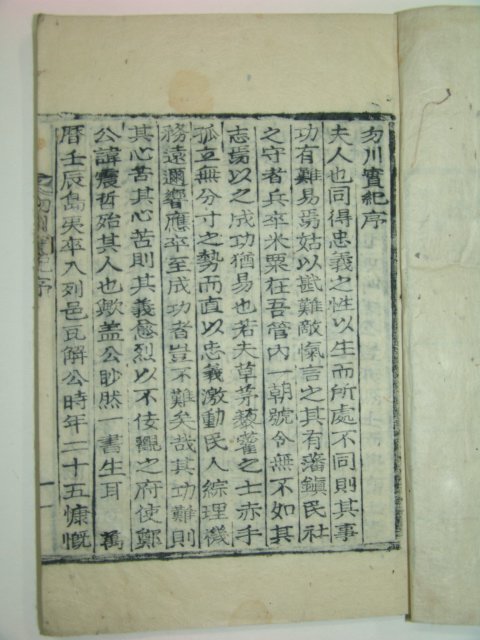 勿川實紀序
夫人也同得忠義之性以生而所處不同則其事
功有難易焉姑以戡難敵愾言之其有藩鎭民社
之守者兵卒米粟在吾管內一朝號令無不如其
志焉以之成功猶易也若夫草茅藜藿之士赤手
孤立無分寸之勢而直以忠義激動民人綜理機
務遠邇響應卒至成功者豈不難矣哉其功難則
其心苦其心苦則其義愈烈以不佞觀之府使鄭
公諱震哲殆其人也歟盖公眇然一書生耳 萬
曆壬辰島夷卒入列邑瓦解公時年二十五慷慨